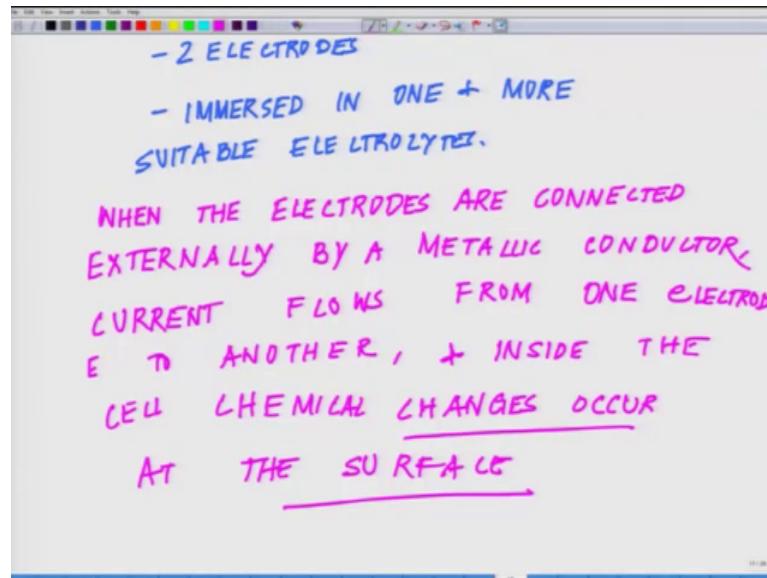 - 2 ELECTRODES
- IMMERSED IN ONE + MORE
SUITABLE ELELTROLYTES.
WHEN THE ELECTRODES ARE CONNECTED
EXTERNALLY BY A METALLIC CONDUCTOR,
CURRENT FLOWS FROM ONE eLECTROD
E TO ANOTHER, + INSIDE THE
CELL CHEMICAL CHANGES OCCUR
AT THE SURFACE